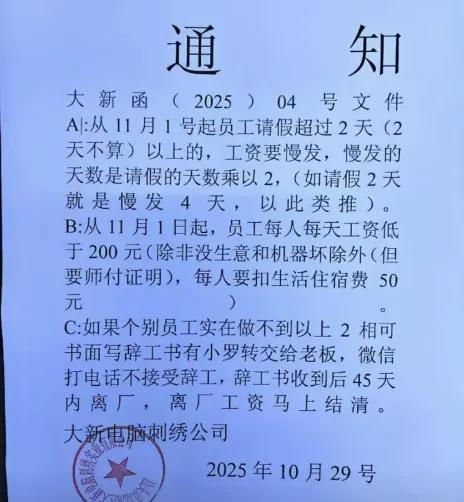 通 知
大新函（2025）04 号文件
A|:从 11 月 1 号起员工请假超过 2 天（2
天不算）以上的，工资要慢发，慢发的
天数是请假的天数乘以 2，（如请假 2 天
就是慢发 4 天，以此类推）。
B:从 11 月 1 日起，员工每人每天工资低
于 200 元（除非没生意和机器坏除外（但
要师付证明），每人要扣生活住宿费 50
元）。
C:如果个别员工实在做不到以上 2 相可
书面写辞工书有小罗转交给老板，微信
打电话不接受辞工，辞工书收到后 45 天
内离厂，离厂工资马上结清。
大新电脑刺绣公司
2025 年 10 月 29 号